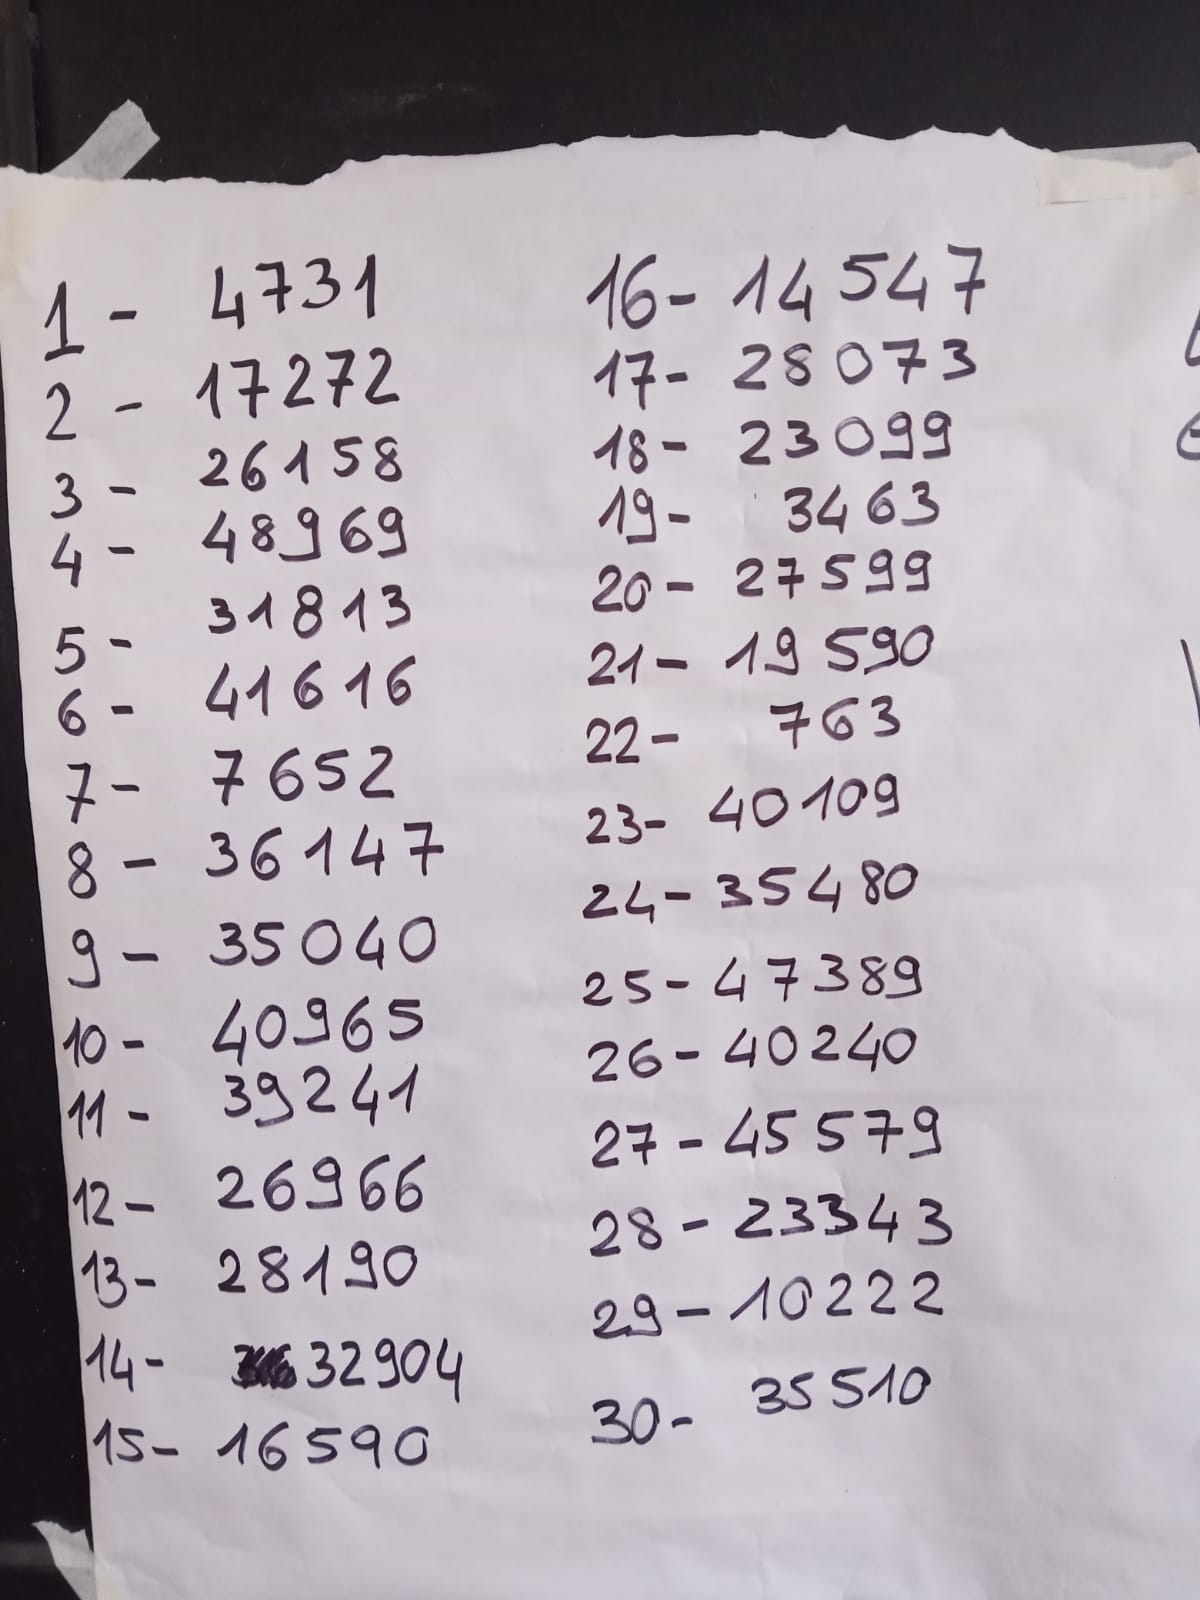 1 - 4731
2 - 17272
3 - 26158
4 - 48969
5 - 31813
6 - 41616
7 - 7652
8 - 36147
9 - 35040
10 - 40965
11 - 39241
12 - 26966
13 - 28190
14 - 32904
15 - 16590
16 - 14547
17 - 28073
18 - 23099
19 - 3463
20 - 27599
21 - 19590
22 - 763
23 - 40109
24 - 35480
25 - 47389
26 - 40240
27 - 45579
28 - 23343
29 - 10222
30 - 35510